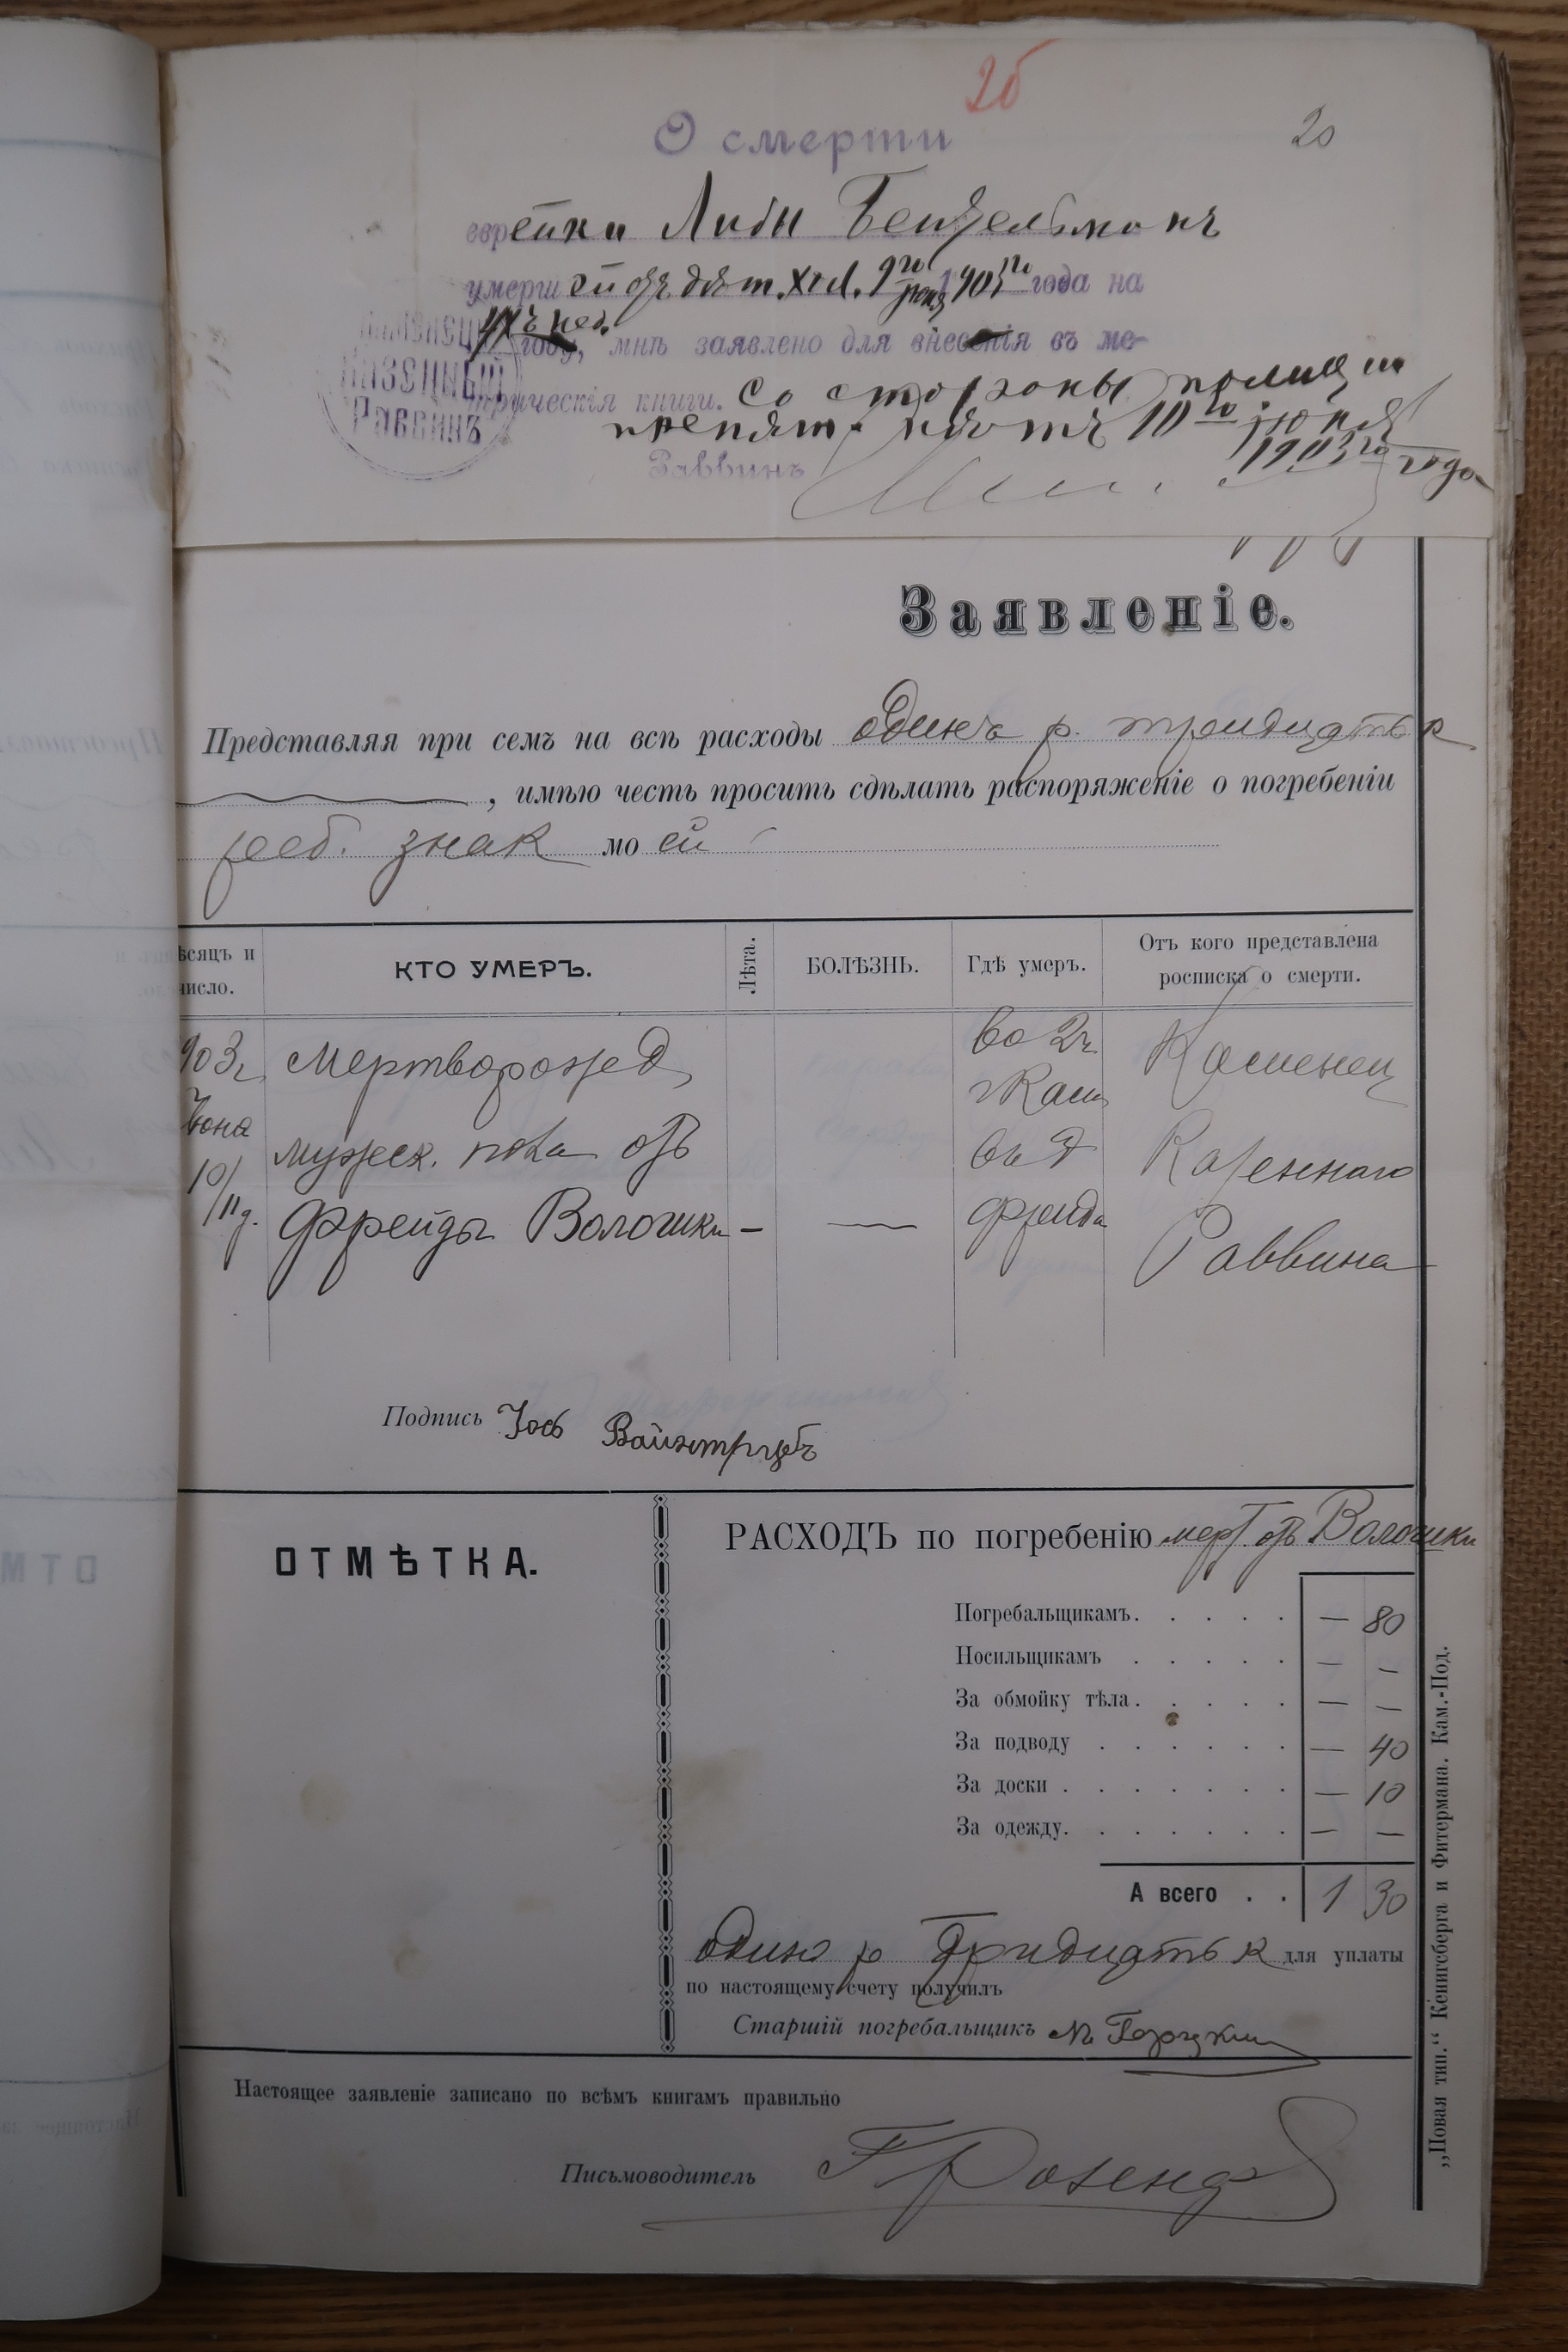 26
20
О смерти
еврейки Либы Бензельманъ
умершей отъ дѣт. хол. 9го іюня 1903го года на
году, мнѣ заявлено для внесенія въ ме-
трическія книги. Со стороны полиціи
препят. нѣтъ 10го іюня
1903го года
Раввинъ
КАМЕНЕЦ
КАЗЕННЫЙ
РАВВИНЪ
Заявленіе.
Представляя при семъ на всѣ расходы одинъ р. тридцать к
, имѣю честь просить сдѣлать распоряженіе о погребеніи
реб. знак моей
ѣсяцъ и число.
КТО УМЕРЪ.
Лѣта.
БОЛѢЗНЬ.
Гдѣ умеръ.
Отъ кого представлена росписка о смерти.
903г. Іюна 10/11 д.
Мертворожед
мужеск. пола отъ
Фрейды Волошки —
—
во 2ч
г Кам
въ д
Фрейда
Каменец
Казеннаго
Раввина
Подпись Іось Вайнтрубъ
ОТМѢТКА.
РАСХОДЪ по погребенію мерт. отъ Волошки
Погребальщикамъ. . . . . — 80
Носильщикамъ . . . . . — —
За обмойку тѣла. . . . . — —
За подводу . . . . . . — 40
За доски . . . . . . . — 10
За одежду. . . . . . . — —
А всего . . 1 30
один р Тридцать к для уплаты
по настоящему счету получилъ
Старшій погребальщикъ М.
Настоящее заявленіе записано по всѣмъ книгамъ правильно
Письмоводитель
„Новая тип.“ Кенигсберга и Фитермана. Кам.-Под.